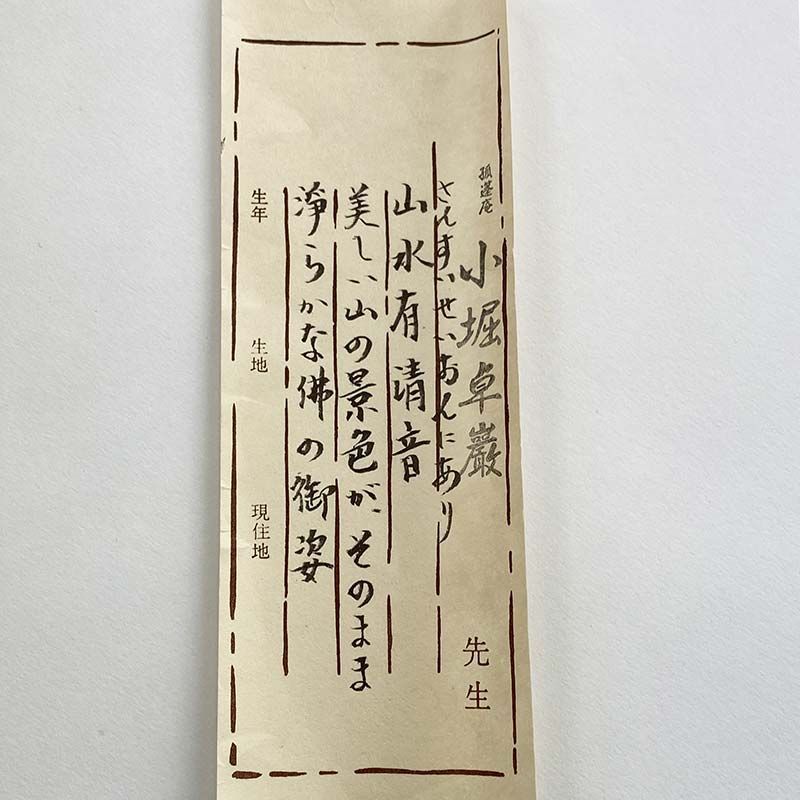 孤篷庵 小堀卓巖 先生
さんすいせいおんにあり
山水有清音
美しい山の景色が、そのまま
淨らかな佛の御姿
生年 生地 現住地